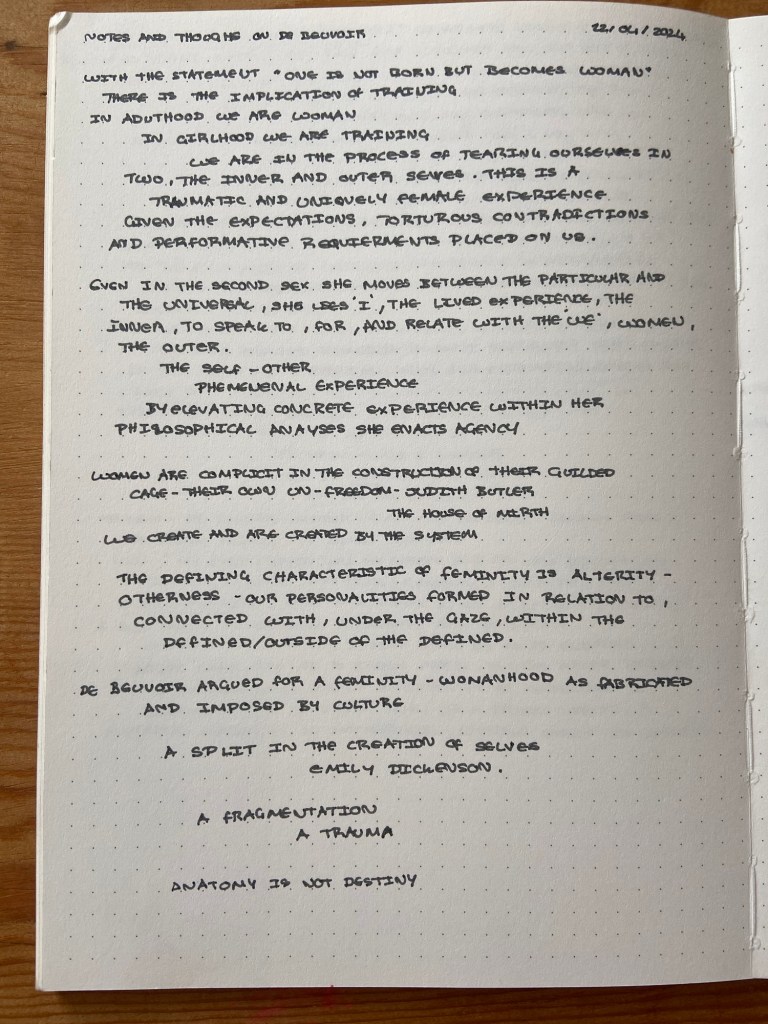 NOTES AND THOUGHS ON DE BEUVOIR 22/04/2024
WITH THE STATEMENT "ONE IS NOT BORN BUT BECOMES WOMAN"
THERE IS THE IMPLICATION OF TRAINING
IN ADUTHOOD WE ARE WOMAN
IN GIRLHOOD WE ARE TRAINING
WE ARE IN THE PROCESS OF TEARING OURSELVES IN
TWO, THE INNER AND OUTER SELVES. THIS IS A
TRAUMATIC AND UNIQUELY FEMALE EXPERIENCE
GIVEN THE EXPECTATIONS, TORTUROUS CONTRADICTIONS
AND PERFORMATIVE REQUIERMENTS PLACED ON US.
EVEN IN THE SECOND SEX SHE MOVES BETWEEN THE PARTICULAR AND
THE UNIVERSAL, SHE USES 'I', THE LIVED EXPERIENCE, THE
INNER, TO SPEAK TO, FOR, AND RELATE WITH THE 'WE', WOMEN,
THE OUTER.
THE SELF - OTHER
PHEMENENAL EXPERIENCE
BY ELEVATING CONCRETE EXPERIENCE WITHIN HER
PHILOSOPHICAL ANAYSES SHE ENACTS AGENCY
WOMEN ARE COMPLICIT IN THE CONSTRUCTION OF THEIR GUILDED
CAGE - THEIR OWN UN-FREEDOM - JUDITH BUTLER
THE HOUSE OF MIRTH
WE CREATE AND ARE CREATED BY THE SYSTEM
THE DEFINING CHARACTERISTIC OF FEMINITY IS ALTERITY -
OTHERNESS - OUR PERSONALITIES FORMED IN RELATION TO,
CONNECTED WITH, UNDER THE GAZE, WITHIN THE
DEFINED/OUTSIDE OF THE DEFINED.
DE BEUVOIR ARGUED FOR A FEMINITY - WOMANHOOD AS FABRICATED
AND IMPOSED BY CULTURE
A SPLIT IN THE CREATION OF SELVES
EMILY DICKENSON.
A FRAGMENTATION
A TRAUMA
ANATOMY IS NOT DESTINY